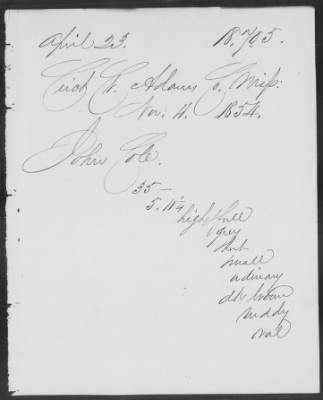 April 23. 18.705.
Circt Ct. Adams Co. Misp:
Nov. 11. 1854.
John Cole.
35 –
5. 11 1/4
high & full
grey
short
small
ordinary
dk brown
ruddy
oval